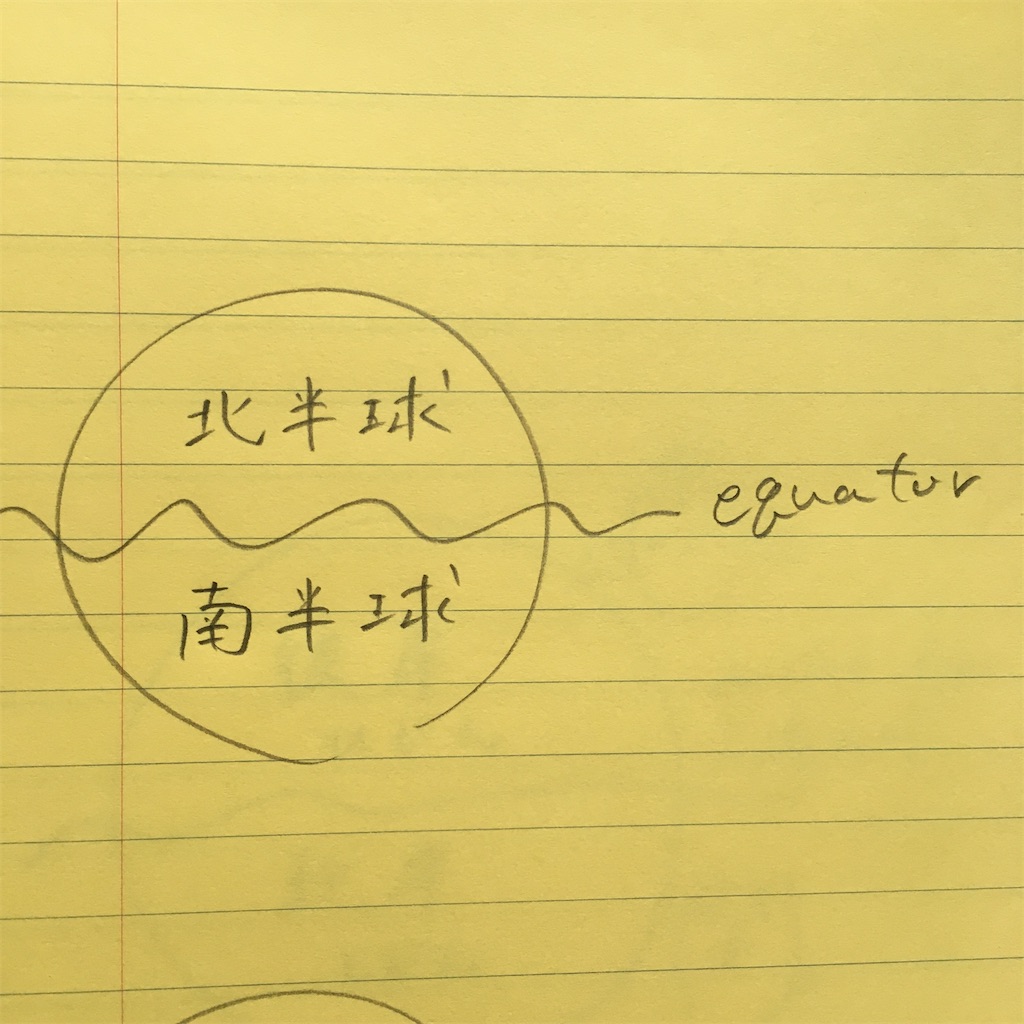 北半球
equator
南半球